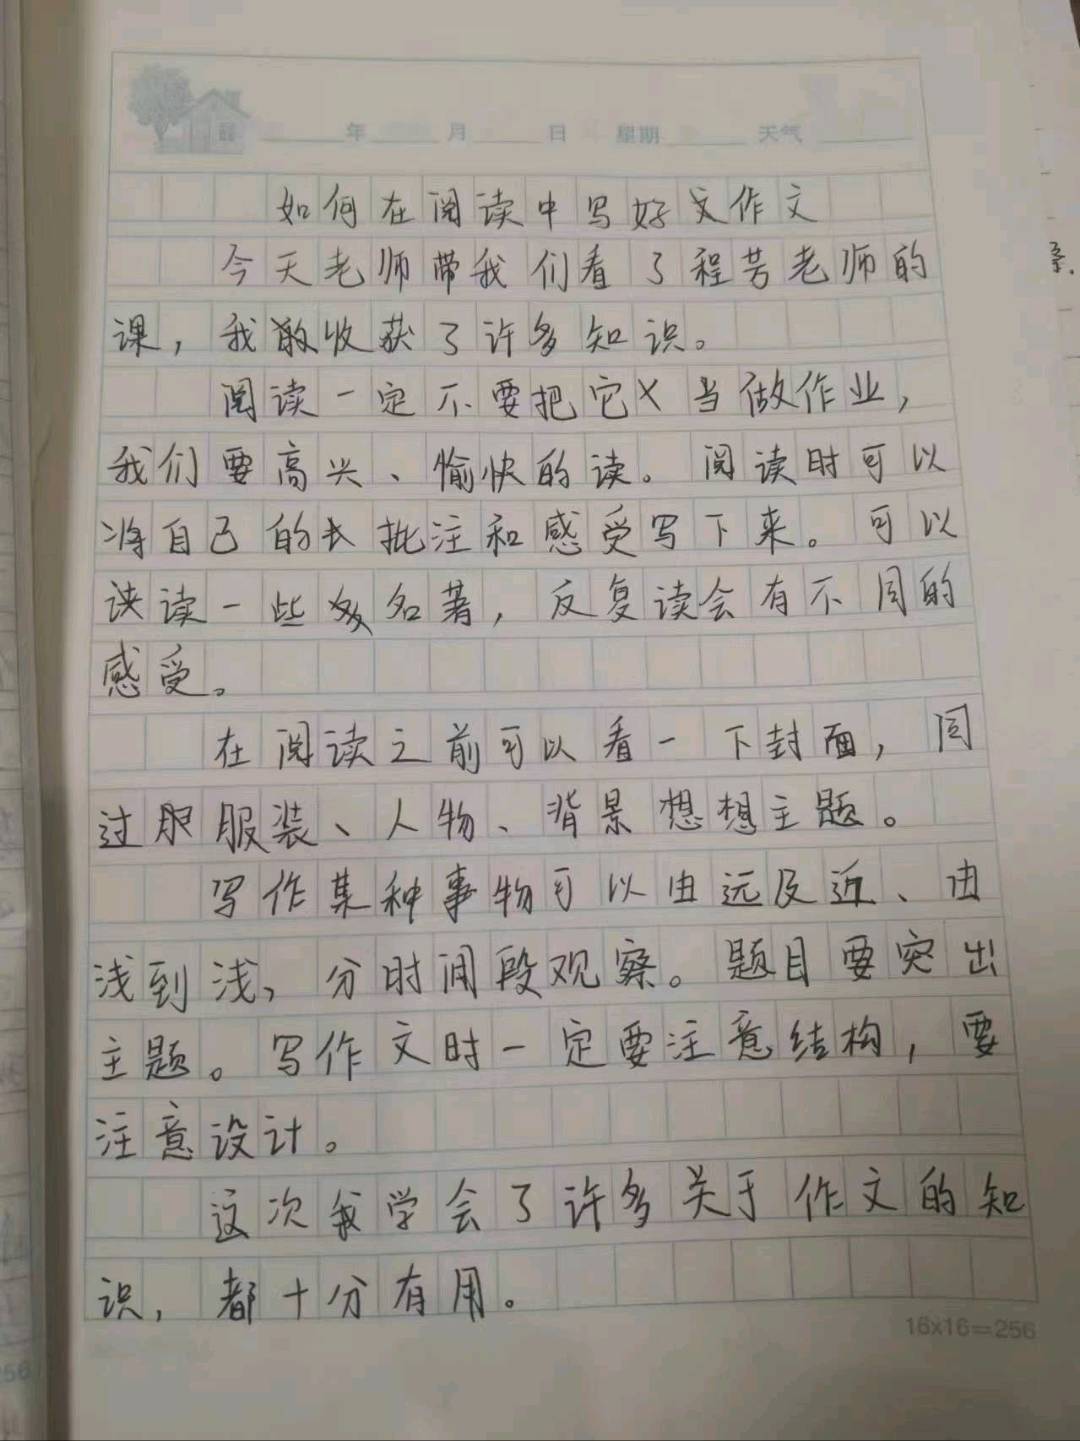 年 月 日 星期 天气
如何在阅读中写好作文
今天老师带我们看了程芳老师的
课，我收获了许多知识。
阅读一定不要把它当做作业，
我们要高兴、愉快的读。阅读时可以
将自己的批注和感受写下来。可以
读一些名著，反复读会有不同的
感受。
在阅读之前可以看一下封面，同
过服装、人物、背景想想主题。
写作某种事物可以由远及近、由
浅到浅，分时间段观察。题目要突出
主题。写作文时一定要注意结构，要
注意设计。
这次我学会了许多关于作文的知
识，都十分有用。
16x16=256